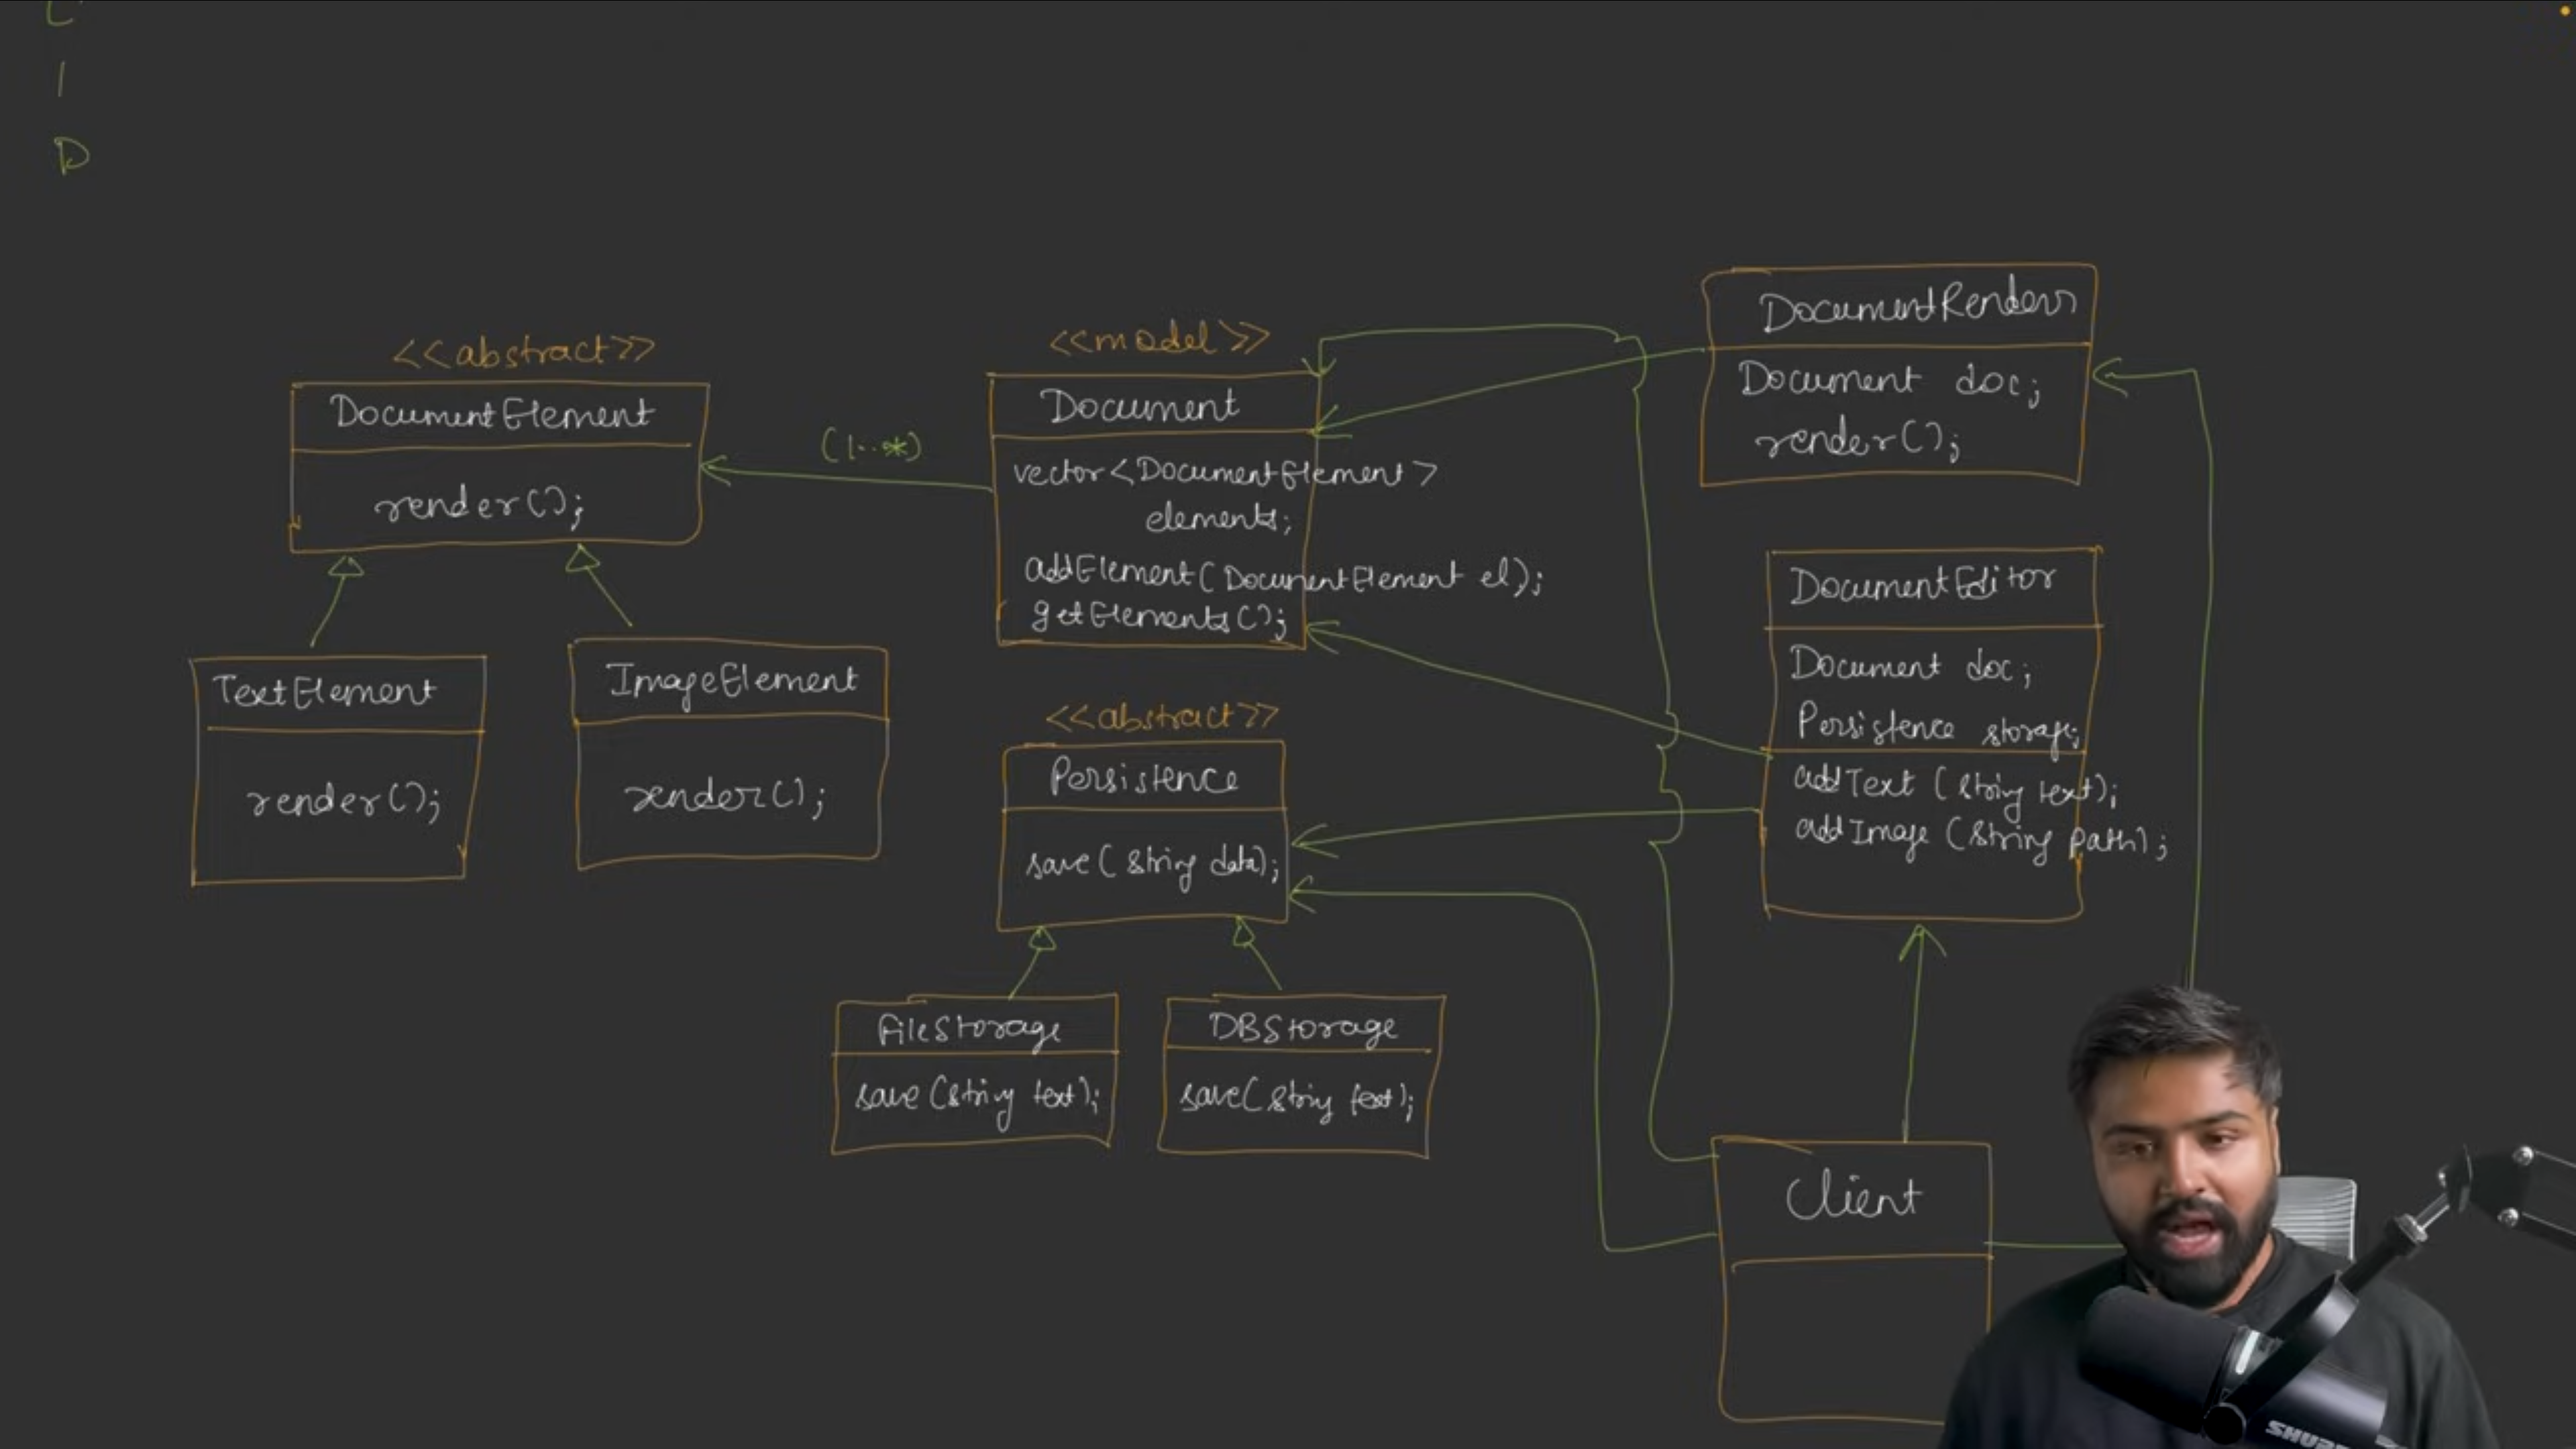 L
I
D
<<abstract>>
DocumentElement
render();
TextElement
render();
ImageElement
render();
(1..*)
<<model>>
Document
vector<DocumentElement>
elements;
addElement(DocumentElement el);
getElements();
<<abstract>>
Persistence
save(string data);
FileStorage
save(string text);
DBStorage
save(string text);
DocumentRender
Document doc;
render();
DocumentEditor
Document doc;
Persistence storage;
addText (string text);
addImage (string path);
Client